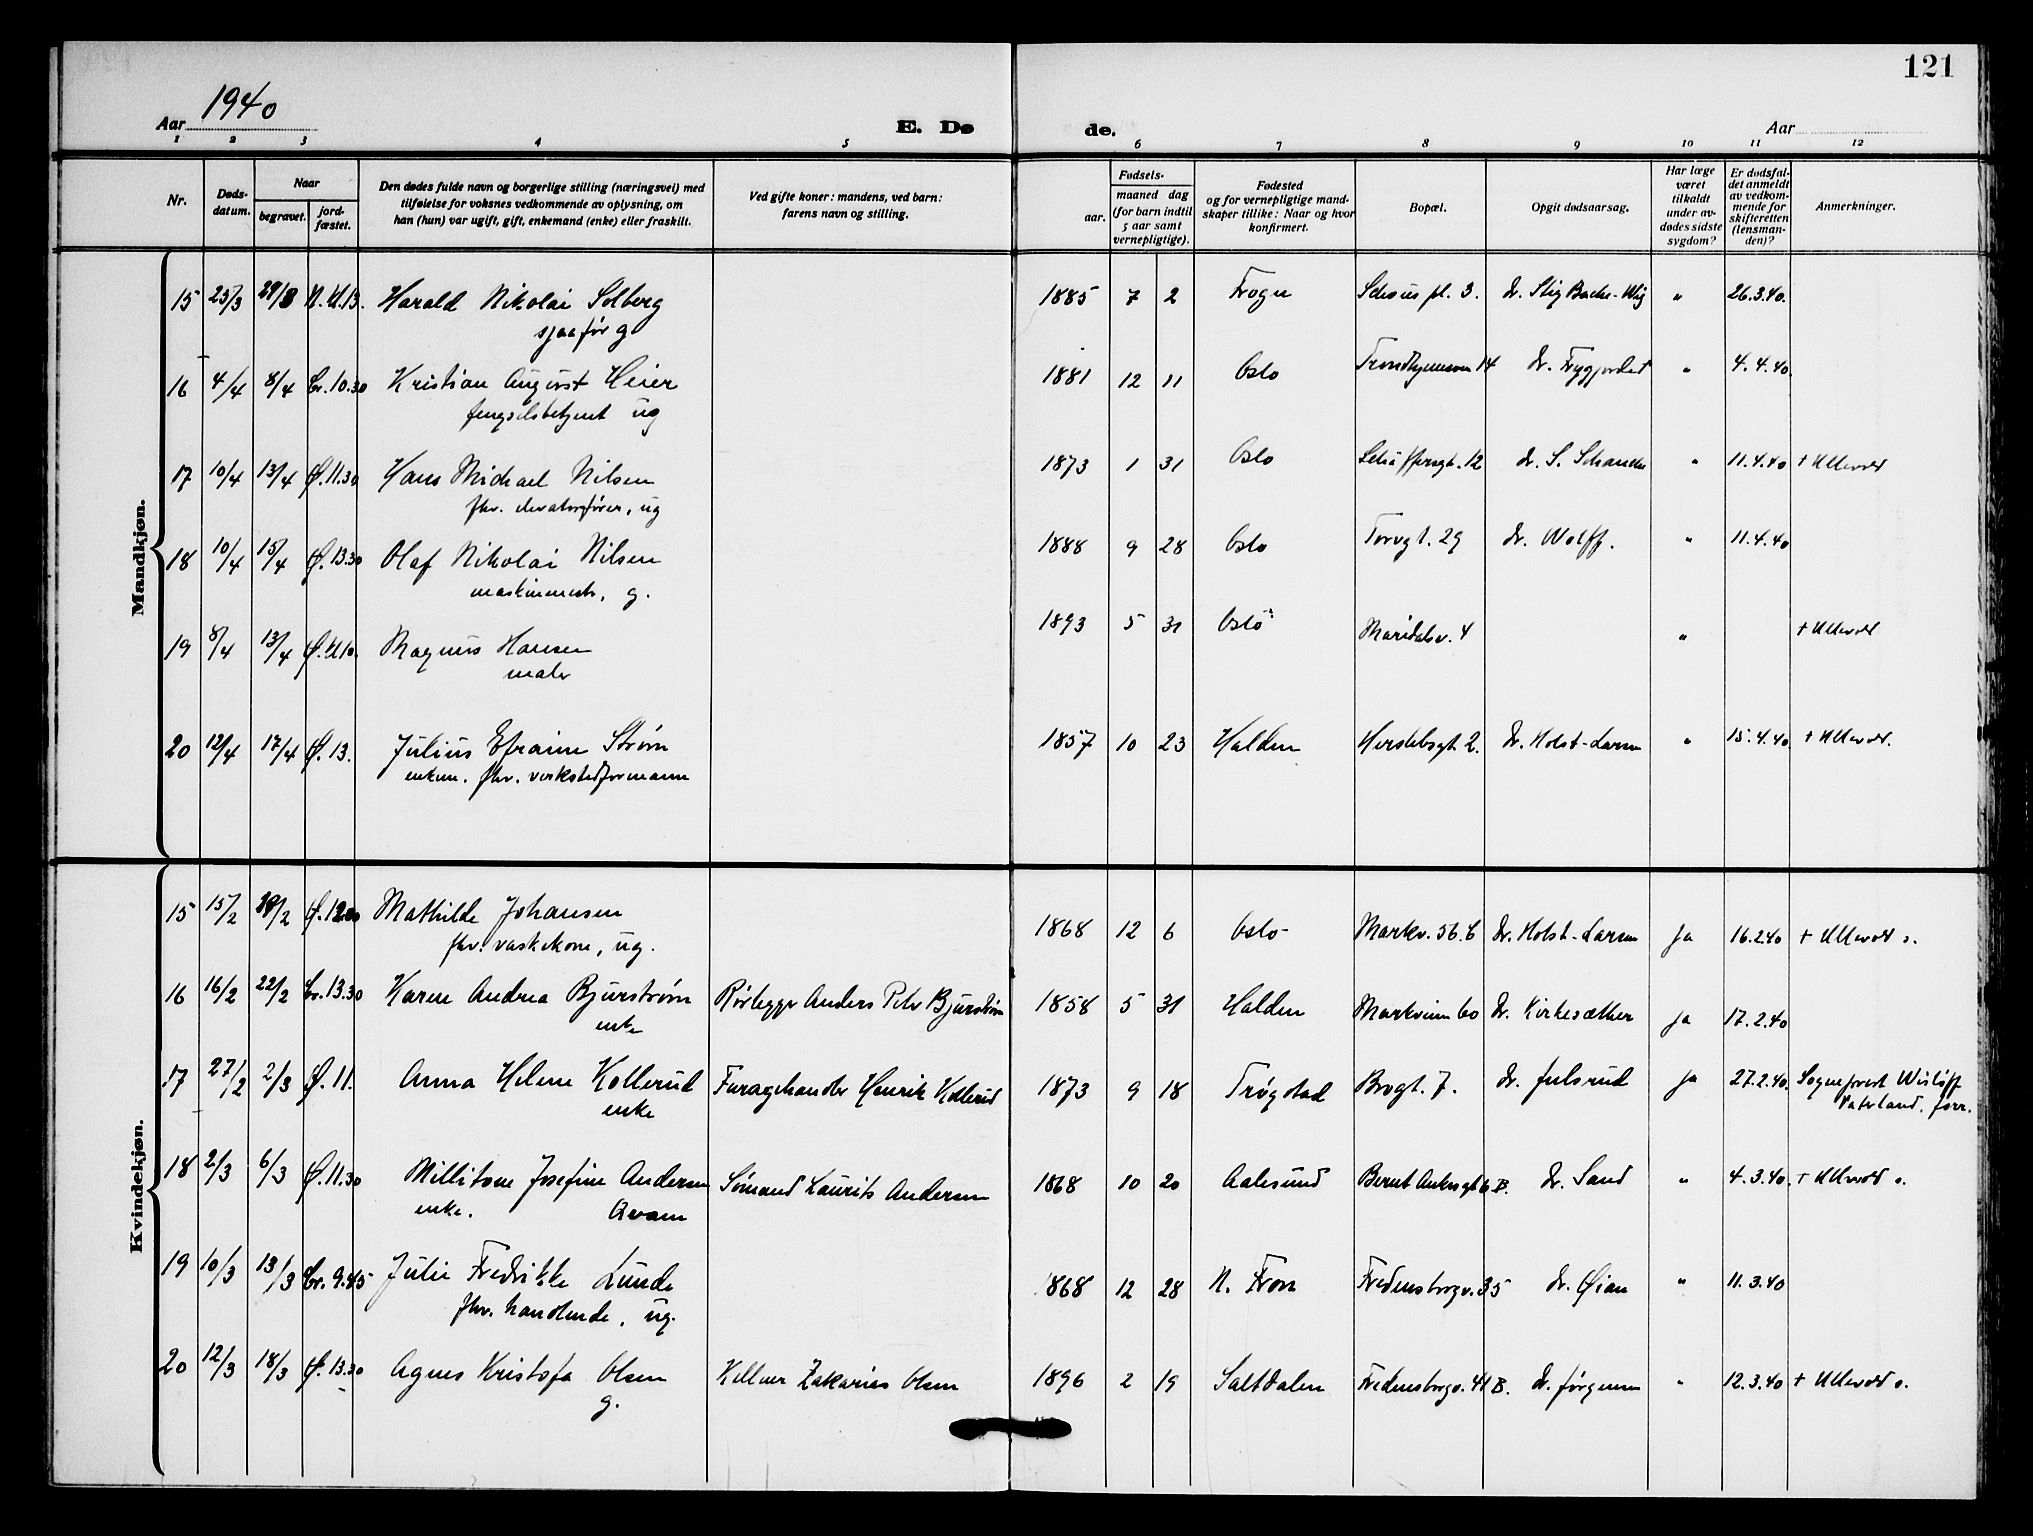 121
1940
Aar
E. Dø
de.
Aar
1 2 3 4 5 6 7 8 9 10 11 12
Nr.
Døds-
datum.
Naar
begravet.
jord-
fæstet.
Den dødes fulde navn og borgerlige stilling (næringsvei) med
tilføielse for voksnes vedkommende av oplysning, om
han (hun) var ugift, gift, enkemand (enke) eller fraskilt.
Ved gifte koner: mandens, ved barn:
farens navn og stilling.
Fødsels-
aar.
maaned dag
(for barn indtil
5 aar samt
vernepligtige).
Fødested
og for vernepligtige mand-
skaper tillike: Naar og hvor
konfirmert.
Bopæl.
Opgit dødsaarsag.
Har læge
været
tilkaldt
under av-
dødes sidste
sygdom?
Er dødsfal-
det anmeldt
av vedkom-
mende for
skifteretten
(lensman-
den)?
Anmerkninger.
Mandkjøn.
15 23/3 29/3 N. kl. 13. Harald Nikolai Solberg 1885 7 2 Frogn Schous pl. 3. Dr. Stig Bache-Wiig " 26.3.40.
sjaafør g
16 4/4 8/4 Cr. 10.30 Kristian August Heier 1881 12 11 Oslo 14 Dr. " 4.4.40.
fengselsbetjent ug
17 10/4 13/4 Ø. 11.30 Hans Michael Nilsen 1873 1 31 Oslo 12 Dr. S. " 11.4.40 + Ullevold
fhv. elevatorfører, ug
18 10/4 15/4 Ø. 13.30 Olaf Nikolai Nilsen 1888 9 28 Oslo Torvgt. 29 Dr. Wolff. " 11.4.40
maskinmestr, g.
19 8/4 13/4 Ø. kl 10. Magnus Hansen 1893 5 31 Oslo Maridalsv. 4 " + Ullevold
maler
20 12/4 17/4 Ø. 13. Julius Efraim Strøm 1857 10 23 Halden Herslebsgt. 2. Dr. Holst-Larsen " 15.4.40 + Ullevold.
enkem. fhv. verkstedformann
Kvindekjøn.
15 15/2 /2 Ø. Mathilde Johansen 1868 12 6 Oslo Markv. 56.b Dr. Holst-Larsen ja 16.2.40 + Ullevold s.
fhv. vaskekone, ug.
16 16/2 22/2 Cr. 13.30 Karen Andrea Bjurstrøm Rørlegger Anders Peter Bjurstrøm 1858 5 31 Halden Markveien 60 Dr. Kirkesæther ja 17.2.40
enke
17 27/2 2/3 Ø. 11. Anna Helene Kollerud Furagehandler Henrik Kollerud 1873 9 18 Trøgstad Brogt. 7. Dr. Julsrud ja 27.2.40. Sogneprest Wisløff
enke Vaterland. forr.
18 2/3 6/3 Ø. 11.30 Josefine Andersen Sømand Laurits Andersen 1868 10 20 Aalesund Bernt Ankersgt 6 B. Dr. Sand " 4.3.40. + Ullevold s.
enke.
19 10/3 13/3 Cr. 9.45 Julie Fredrikke Lunde 1868 12 28 N. Fron Fredensborgv. 35 Dr. Øian " 11.3.40
fhv. handlende, ug.
20 12/3 18/3 Ø. 13.30 Agnes Kristofa Olsen Kellner Zakarias Olsen 1896 2 19 Saltdalen Fredensborgv. 41 B. Dr. Jørgensen " 12.3.40 + Ullevold s.
g.